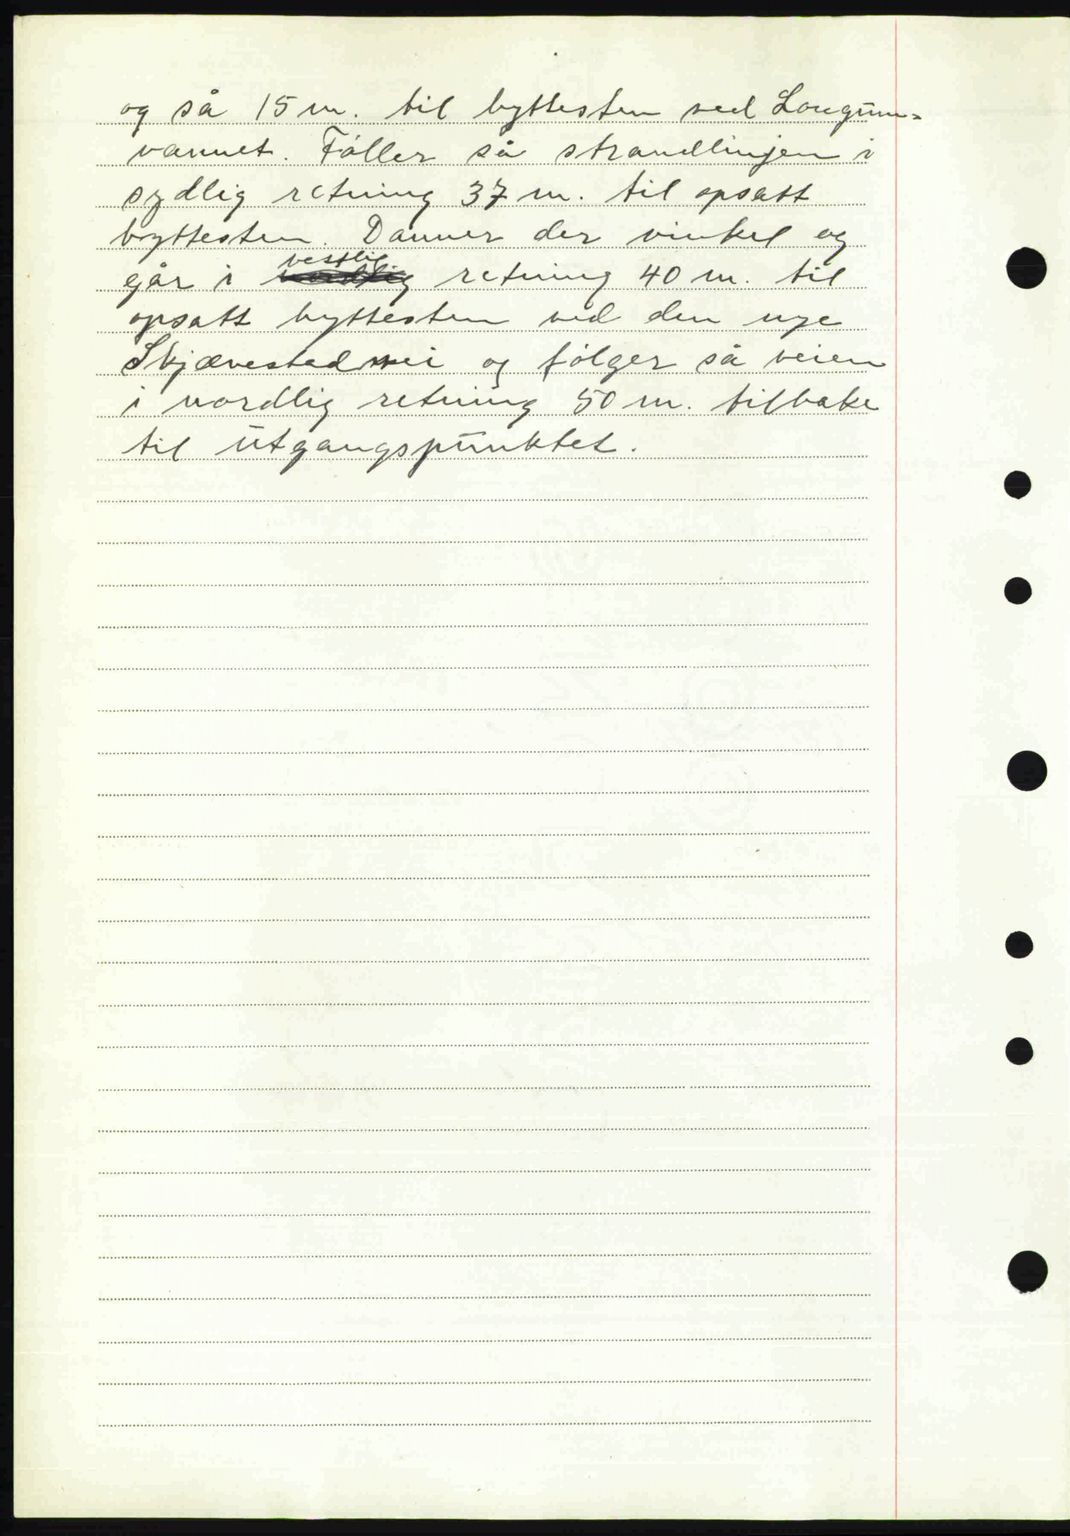 og så 15 m. til byttesten ved Longum=
vannet. Føller så strandlinjen i
sydlig retning 37 m. til opsatt
byttesten. Danner der vinkel og
går i vestlig retning 40 m. til
opsatt byttesten ved den nye
Skjævestadvei og følger så veien
i nordlig retning 50 m. tilbake
til utgangspunktet.